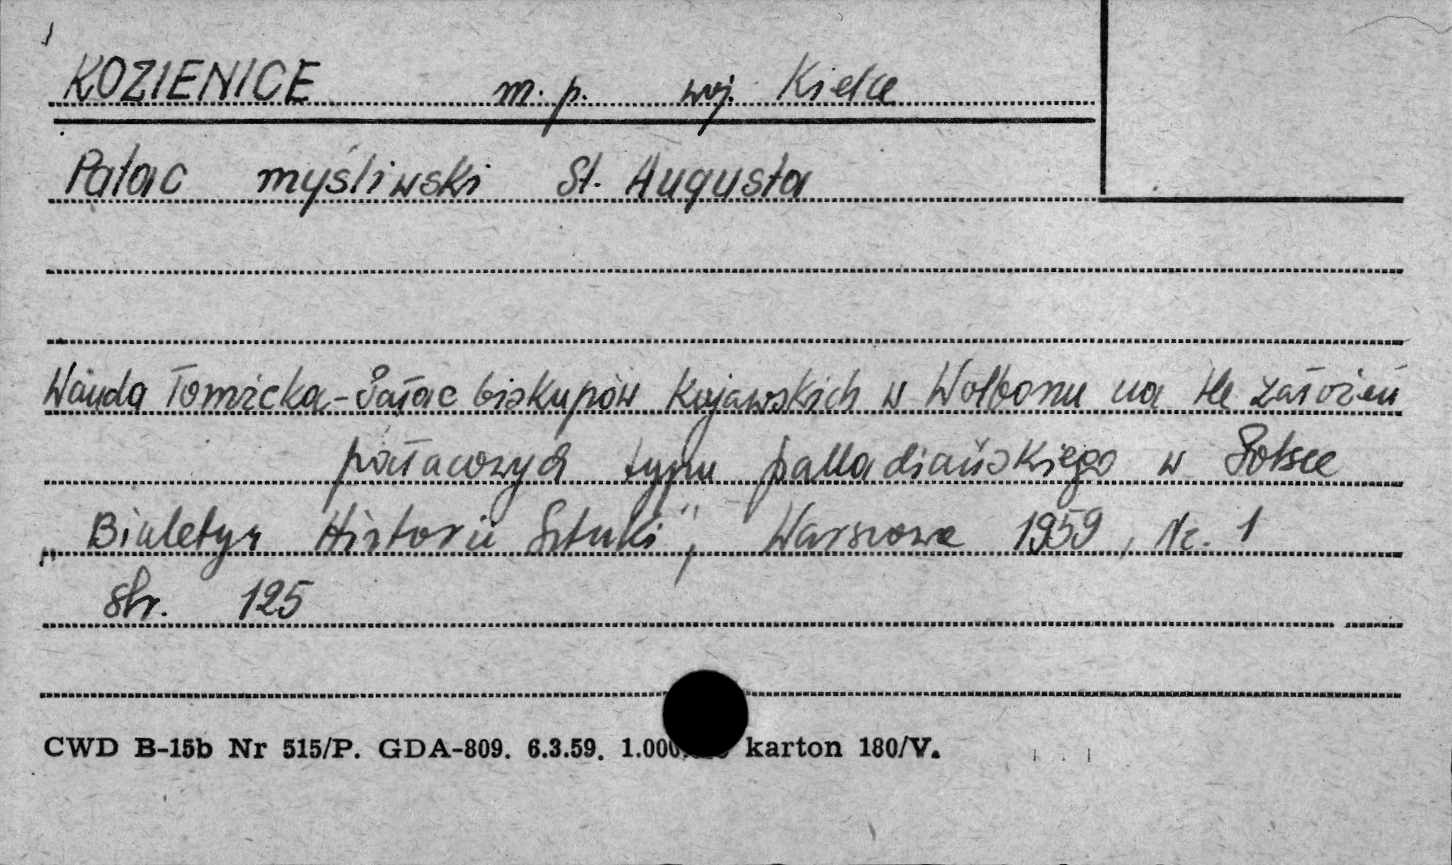 KOZIENICE m. p. woj. Kielce
Pałac myśliwski St. Augusta
Wanda Tomicka - Pałac biskupów Kujawskich w Wolborzu na tle założeń
pałacowych typu palladiańskiego w Polsce
„Biuletyn Historii Sztuki", Warszawa 1959, Nr. 1
str. 125
CWD B-15b Nr 515/P. GDA-809. 6.3.59. karton 180/V.